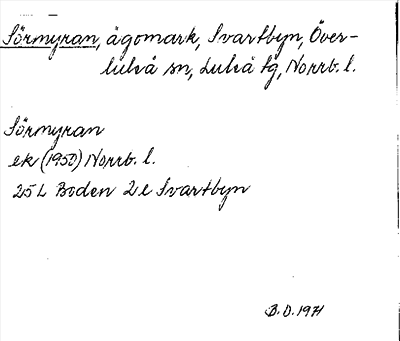 Sörmyran, ägomark, Svartbyn, Över-
luleå sn, Luleå tg, Norrb. l.
Sörmyran
ek (1950) Norrb. l.
25L Boden 2e Svartbyn
B.D. 1971